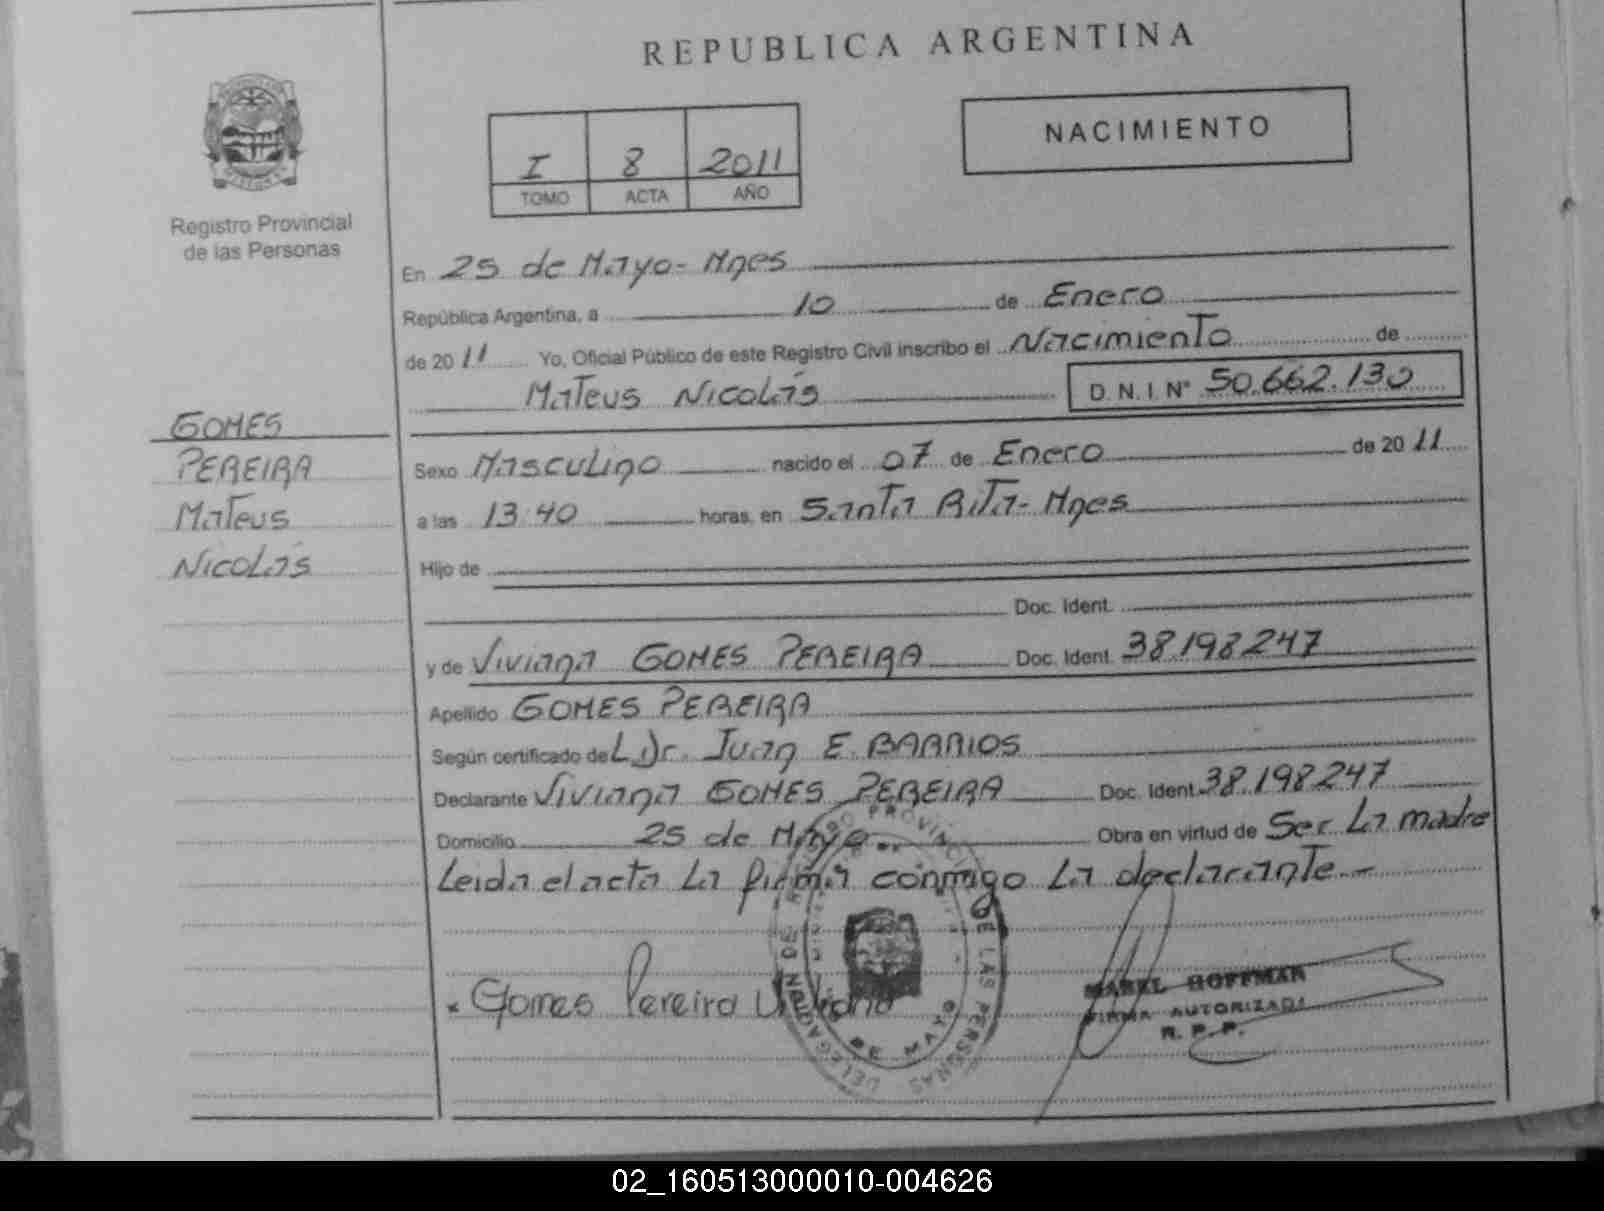 REPUBLICA ARGENTINA
NACIMIENTO
I 8 2011
TOMO ACTA AÑO
Registro Provincial
de las Personas
GOMES
PEREIRA
Mateus
Nicolás
En 25 de Mayo - Mnes
República Argentina, a 10 de Enero
de 2011 Yo, Oficial Público de este Registro Civil inscribo el Nacimiento de
Mateus Nicolás D.N.I. N° 50.662.130
Sexo Masculino nacido el 07 de Enero de 2011
a las 13:40 horas, en Santa Rita - Mnes
Hijo de
Doc. Ident.
y de Viviana GOMES PEREIRA Doc. Ident. 38.198.247
Apellido GOMES PEREIRA
Según certificado de L Dr. Juan E. BARRIOS
Declarante Viviana GOMES PEREIRA Doc. Ident. 38.198.247
Domicilio 25 de Mayo Obra en virtud de Ser La madre
Leida el acta La firma conmigo La declarante.-
Gomes Pereira Viviana
DELEGACION DE REGISTRO PROVINCIAL DE LAS PERSONAS
DE MAYO
MABEL HOFFMAN
FIRMA AUTORIZADA
R. P. P.
02_160513000010-004626